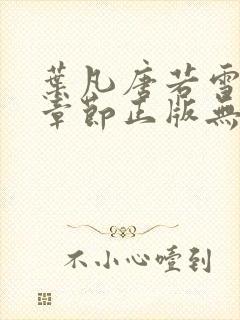 葉凡唐若雪
章節正版無
不小心噎到